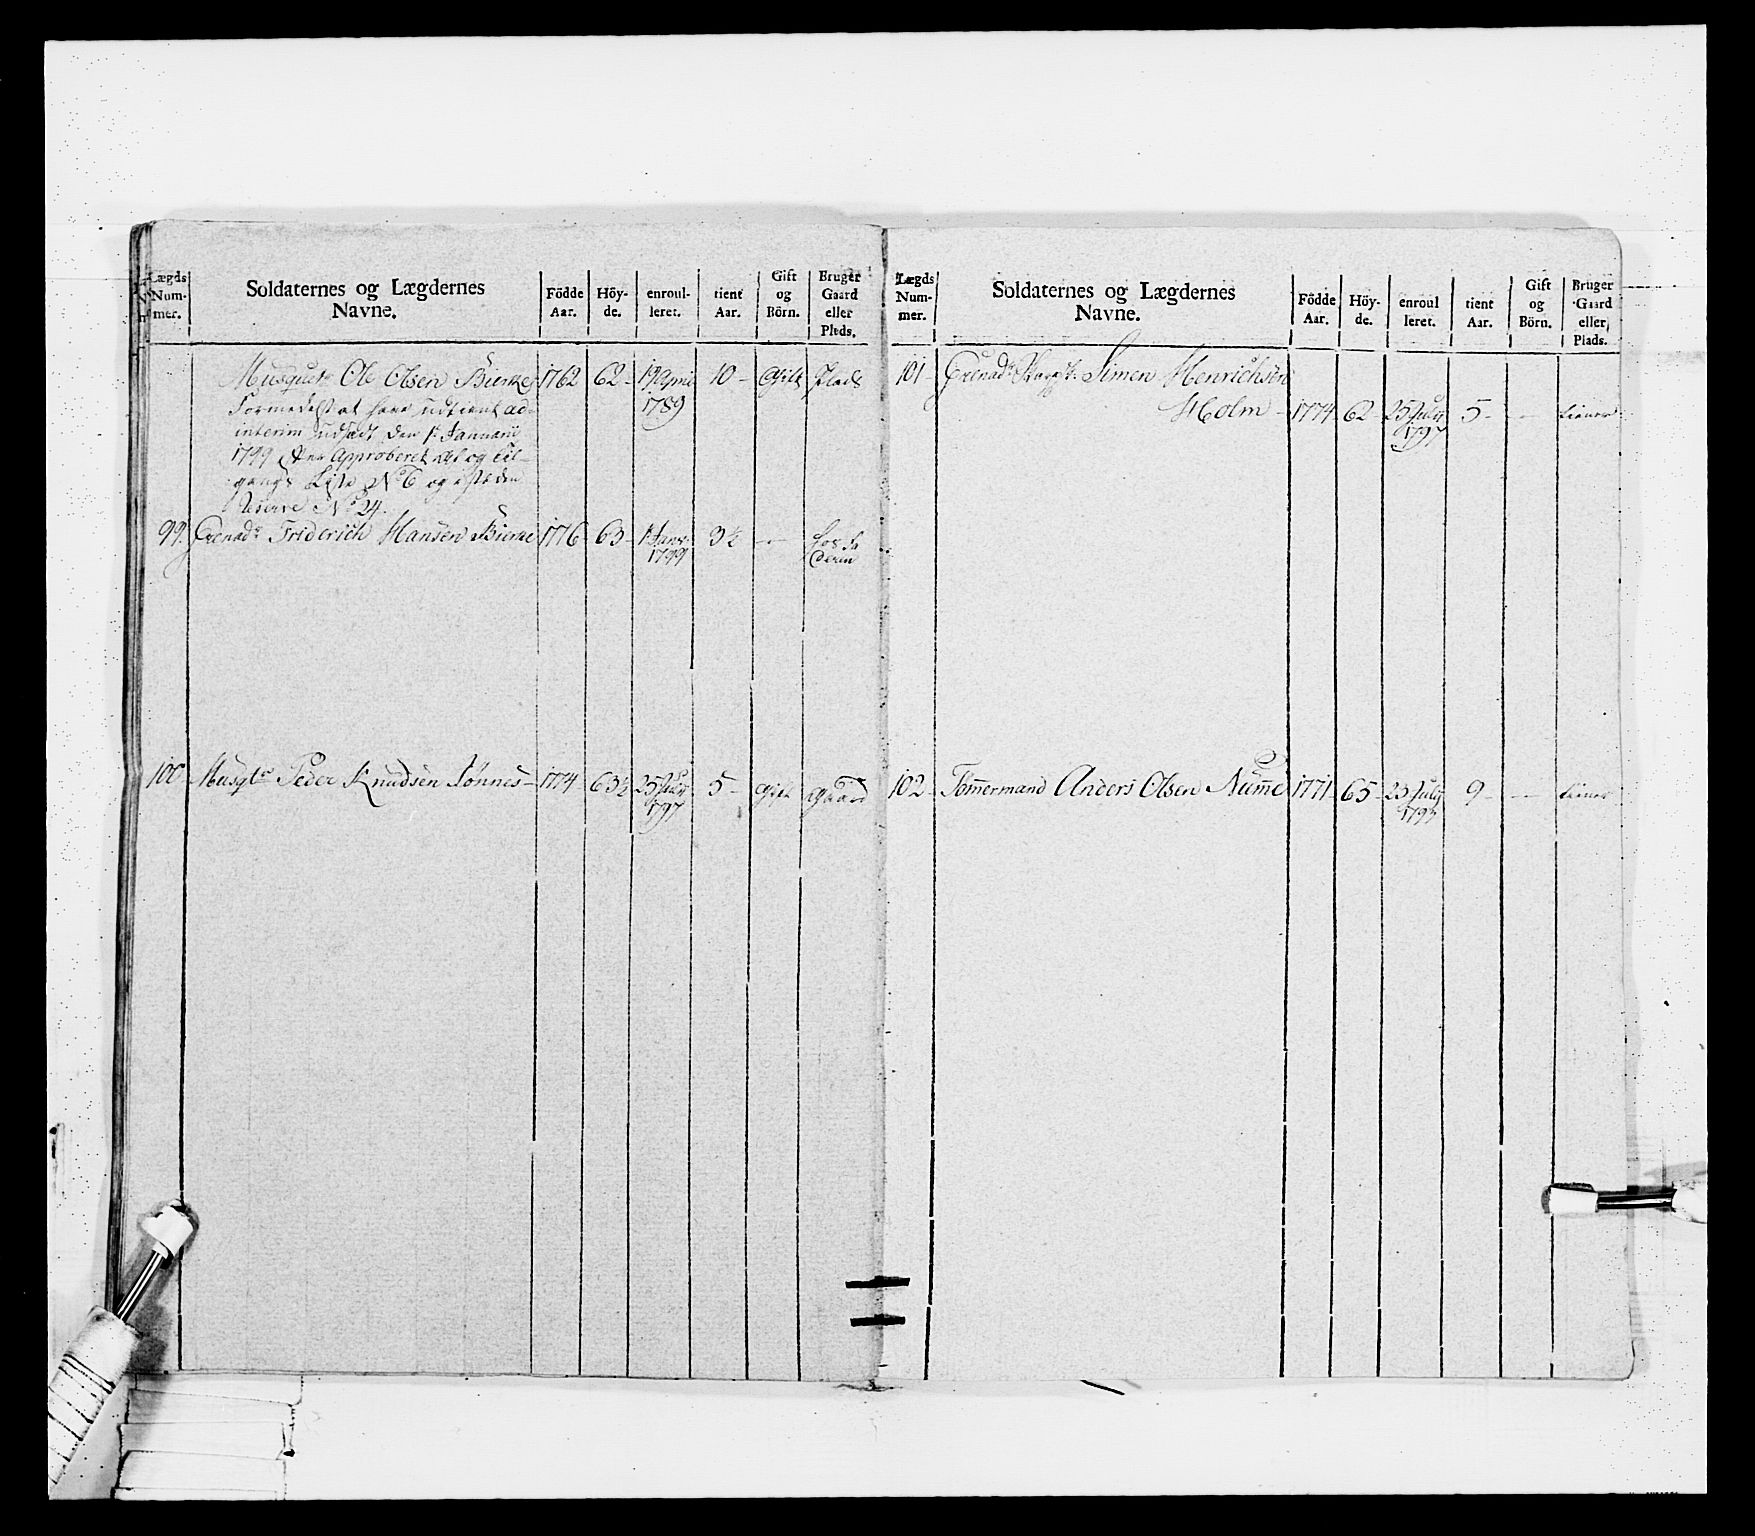 Lægds Num- mer.
Soldaternes og Lægdernes Navne.
Födde Aar.
Höy- de.
enroul- leret.
tient Aar.
Gift og Börn.
Bruger Gaard eller Plads.
Musquet Ole Olsen Bierke 1762 62 - 19 April 1789 10 - Gift Plads
Formedelst at have udtient ad
interim udsadt den 1t Januarii
1799 Approberet Af og til-
gangs Liste No 6 og isteden
Reserve No 24.
99. Grenadr Friderich Hansen Bierke 1776 - 63 - 1 Janr 1799 3½ - Hos Fa deren
100 - Musqtr Peder Knudsen Tønnes - 1774 63½ 25 July 1797 5 - Gift Gaard
Lægds Num- mer.
Soldaternes og Lægdernes Navne.
Födde Aar.
Höy- de.
enroul leret.
tient Aar.
Gift og Börn.
Bruger Gaard eller Plads.
101 - Grenadr Simen Henrichsen
Holm - 1774 62 - 25 July 1797 5 - - tiener
102 - Tømmermand Anders Olsen Numme 1771 - 65 - 23 July 1793 9 - - tiener